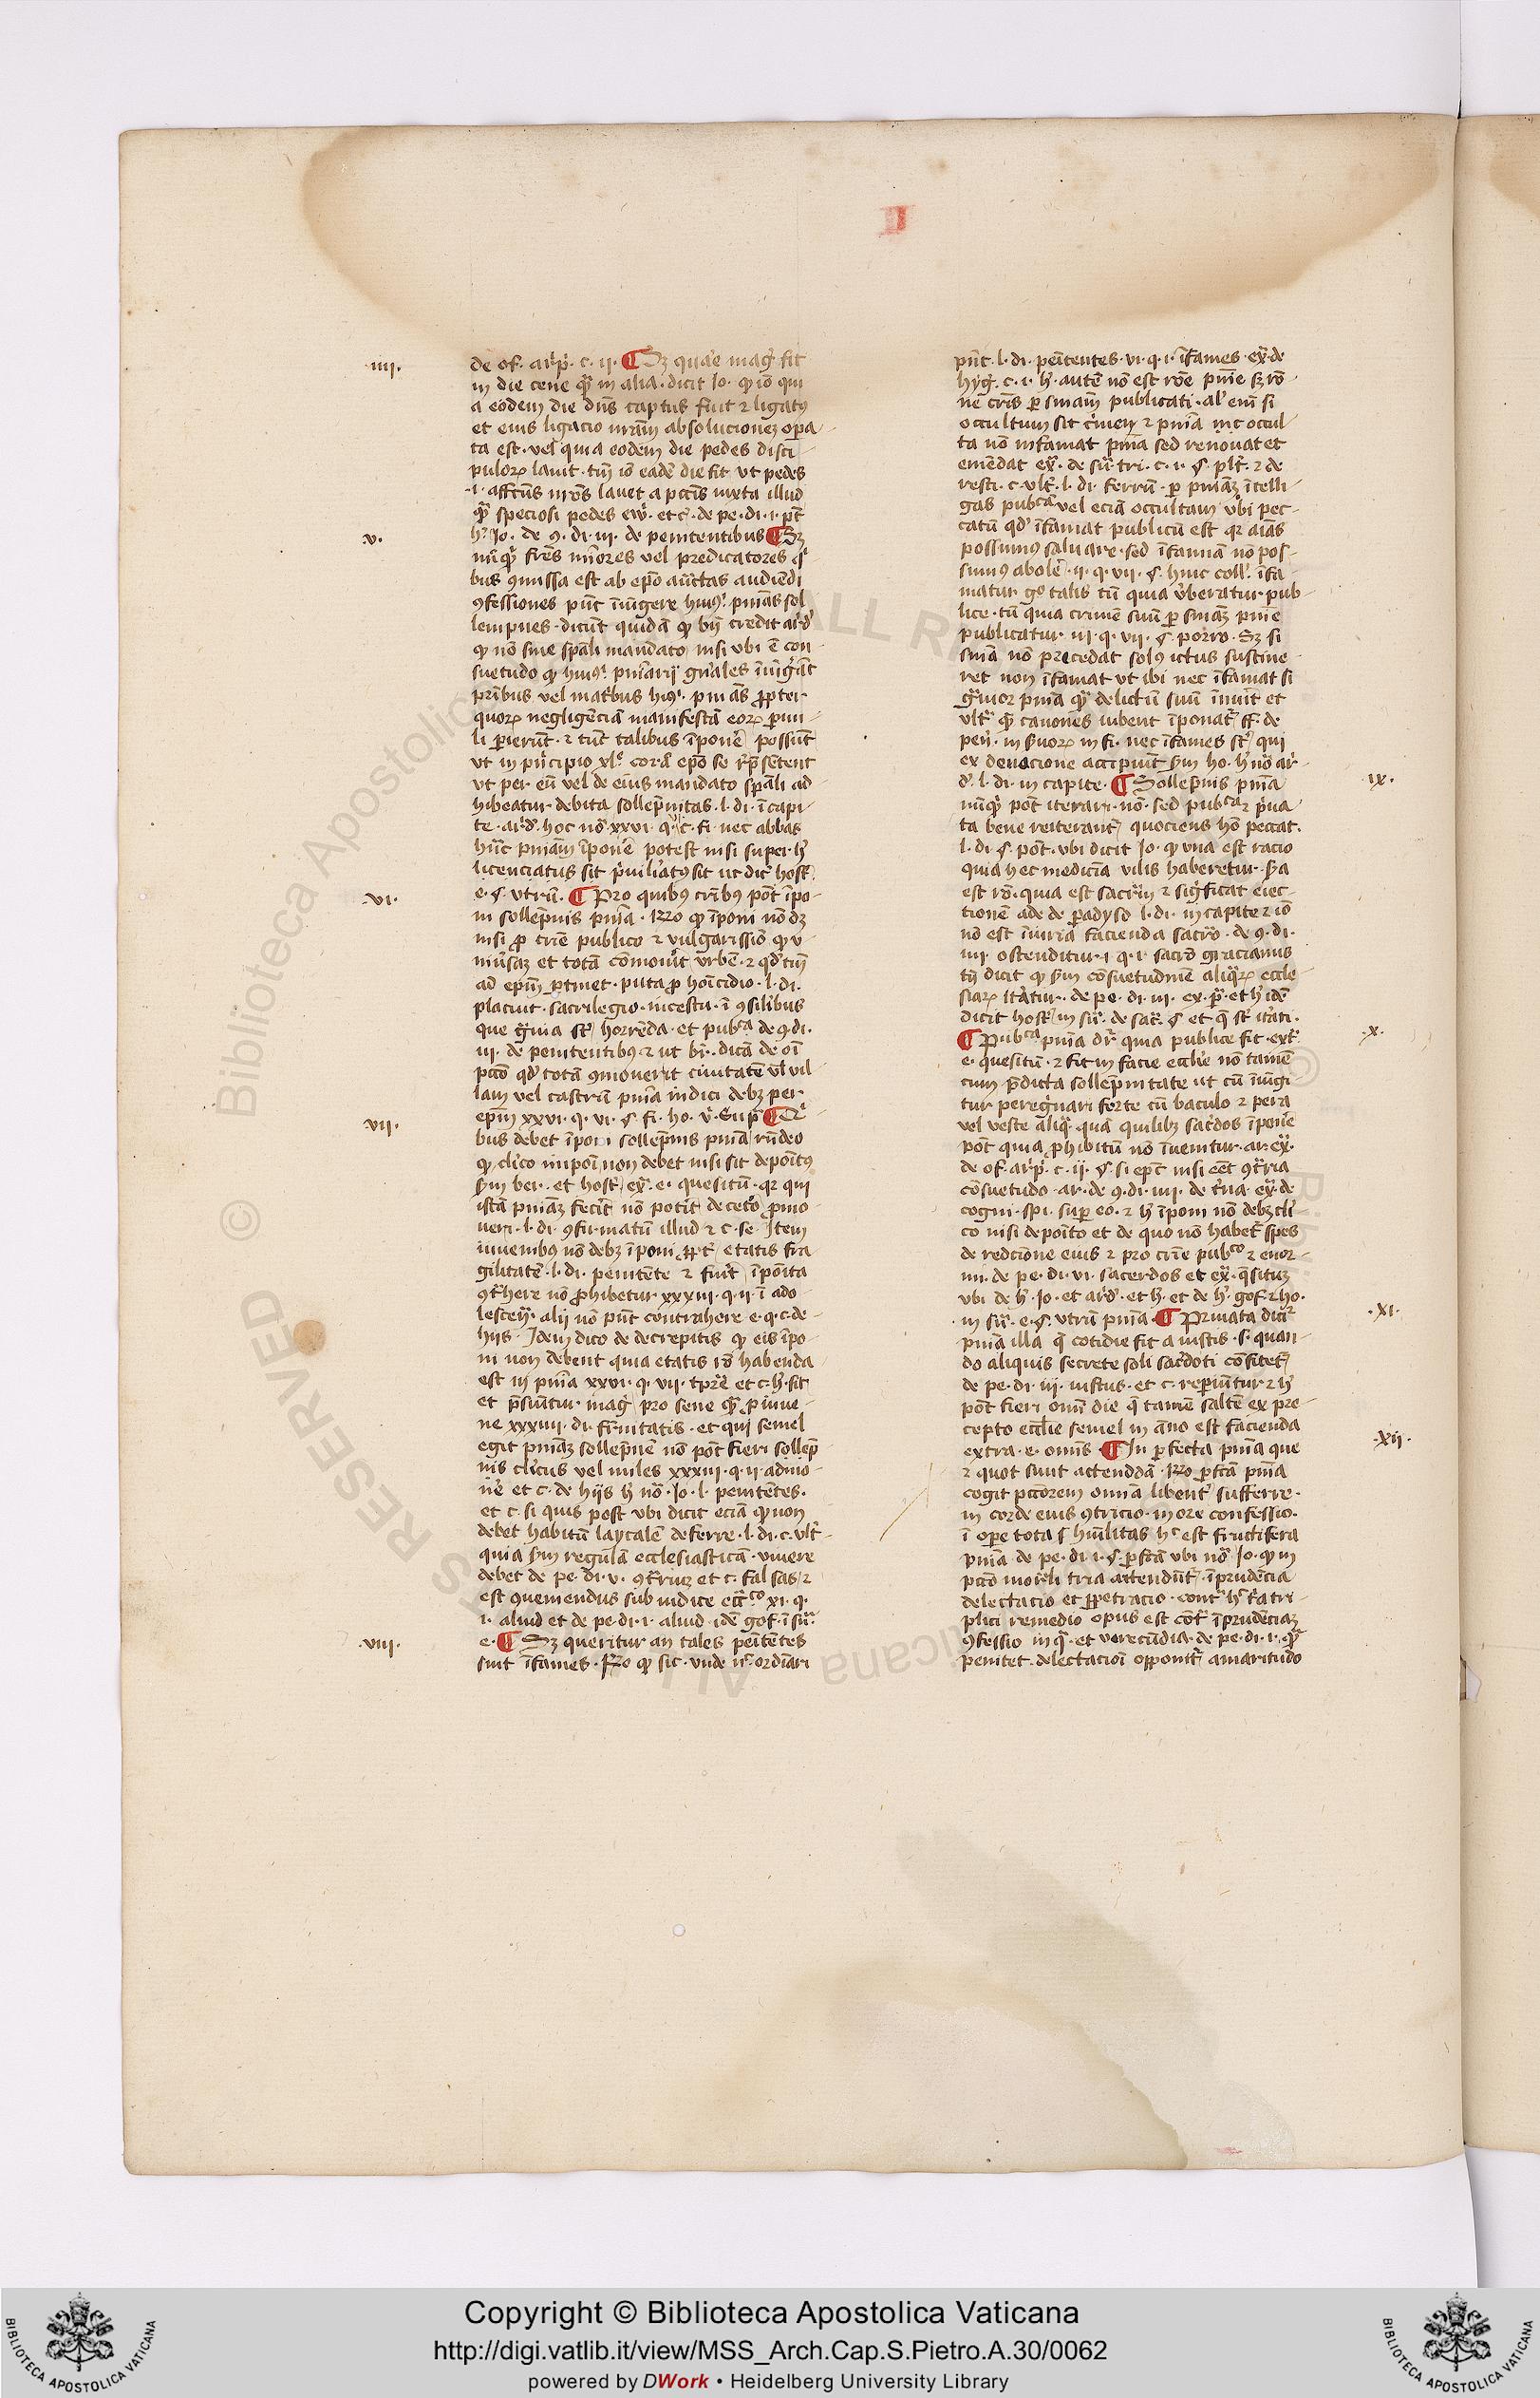 I
.iiii.
de of. ar̄p̄. c. ii. ¶ Sz quare mag̃ fit
in die cene q̄ȝ in alia. dicit Jo. ꝙ iō qui
a eodem die dn̄s captus fuit ⁊ ligatꝰ
et eius ligacio nr̄am absolucionez oꝑa-
ta est. vel quia eodem die pedes disci-
pulorꝝ lauit. tn̄ iō eadē die fit ut pedes
.i. affctūs nr̄os lauet a pctīs iuxta illud
q̄ȝ speciosi pedes eiꝰ. etc̄. de pe. di. i. pt̄
v.
h̄. Jo. de ꝯ. di. iii. de penitentibus ¶ Sz
nūqͥd frēs minores vel predicatores qͥ
bus ꝯmissa est ab ep̄o auc̄tas audiēdi
ꝯfessiones pn̄t iniūgere hmoī pnīas sol
lempnes. dicūt quidā ꝙ bn̄ credit ard̄
ꝙ nō sine sp̄ali mandato nisi ubi ē con-
suetudo ꝙ hmoī pnīarij gn̄ales iniūgāt
pr̄ibus vel matr̄bus hmoī pnīas ꝓpter
quorꝝ negligēciā manifestā eorꝝ paruu-
li perierūt. ⁊ tūc talibus īponer̄ possūt
ut in pͥncipio xlᵉ corā ep̄o se rep̄sentent
ut per eū vel de eius mandato sp̄ali ad
hibeatur debita sollēpnitas. l. di. ī capi-
te. ard̄. hoc nō. xxvi. q̄. c. fi. nec abbas
hūc pnīam īponere potest nisi super h̄
licenciatus sit pͥuiliatꝰ sit ut dic̄ host̄.
vi.
e. §. utrū. ¶ Pro quibꝰ crībus pōt īpo-
ni sollēpnis pnīa. Rn̄o ꝙ īponi nō dz
nisi ꝓ crīe publico ⁊ vulgarissīo ꝙ u-
niūsaz et totā cōmouit urbē. ⁊ qd̄ tn̄
ad ep̄m ptinet. puta ꝓ hoīcidio. l. di.
placuit. sacrilegio. incestu. ī ꝯsilibus
que gͣuia st̄ horrēda. et pubᶜᵃ de ꝯ. di.
iii. de penitentibꝰ ⁊ ut br̄. dicā de oī
pctō qd̄ totā ꝯmouerit ciuitatē ul̄ vil-
lam vel castrū pnīa indici debz per
vii.
ep̄m xxvi. q. vi. §. fi. ho. v̄. Sup̄ ¶ Qͥ-
bus debet īponi sollēpnis pnīa rn̄deo
ꝙ clīco imponi non debet nisi sit depōitꝰ
s̄m ber. et host̄ ex̄. e. quesitū. qr qui
istā pnīaz fecīt nō potīt decetō ꝓmo-
ueri. l. di. ꝯfirmatū illud ⁊ c. se. Item
iuuenibus nō debz īponi ꝓpt̄ etatis fra
gilitatē. l. di. penitente ⁊ si fuīt īpoita
ꝯtͣhere nō ꝓhibetur xxxiii. q. ii. ī ado-
lescen̄. alij nō pn̄t contrahere e. q. c. de-
hiis. Idem dico de decrepitis ꝙ eis īpo-
ni non debent quia etatis rō habenda
est in pnīa xxvi. q. vii. tp̄rē et c. h̄. sit
et p̄sūntur mag̃ pro sene q̄ȝ ꝓ iuue-
ne xxxiiii. di. frnitatis. et qui semel
egit pnīaz sollēpnē nō pōt fieri sollēp
nis clīcus vel miles xxxiii. q. ii. admo-
nē et c. de hijs h̄ nō. Jo. l. penitētes.
et c. si quis post ubi dicit eciā ꝙ non
debet habitū laycalē deferre. l. di. c. ult̄
quia s̄m regulā ecclesiasticā. viuere
debet de pe. di. v. ꝯtͣriuz et c. falsas ⁊
est ꝯueniendus sub iudice ecc̄ᶜᵒ xi. q.
i. aliud et de pe. di. i. aliud. idē gof. ī sū.
viii.
e. ¶ Sz queritur an tales penitētes
sint īfames. Rn̄o ꝙ sic. unde nᶜ ordinari
pn̄t. l. di. penitentes. vi. q. i. īfames. ex̄. de
hyg̃. c. i. h̄. autē nō est rōe pnīe sz rō-
ne crīs per snīam publicati. al̄ enī si
occultum sit crimen ⁊ pnīa inc occul-
ta nō infamat pnīa sed renouat et
emēdat ex̄. de sū. tri. c. i. §. plt̄. ⁊ de
resti. c. ult̄. l. di. ferrū. per pnīaz ītelli-
gas pubᶜᵃ vel eciā occultam ubi pec-
catū qd̄ īfamat publicū est qr aīas
possumus saluare. sed īfamiā nō pos-
sumꝰ abolē. ii. q. vii. §. hinc coll̄. īfa-
matur gᵒ talis tū quia vͥberatur pub-
lice. tū quia crimē suū per snīaz pnīe
publicatur. iii. q. vii. §. porro. Sz si
snīa nō precedat solꝰ ictus sustine-
ret non īfamat ut ibi nec īfamat si
gͣuior pnīa q̄ȝ delictū suū īnuīt et
ult̄ q̄ȝ canones iubent īponat̄ ff. de
pen̄. in s̄uorꝝ in fi. nec īfames st̄ qui
ex deuocione accipiūt s̄m ho. h̄ nō ar-
ix.
d̄. l. di. in capite. ¶ Sollēpnis pnīa
nūqͥd pōt iterari. nō. sed pubᶜᵃ ⁊ pͥua-
ta bene reiterant̄ quociens hō peccat.
l. di. §. pōt. ubi dicit Jo. ꝙ una est racio
quia hec medicīa vilis haberetur. s̄a
est rō. quia est sacrm̄ ⁊ sigͥficat eiec-
tionē ade de paradyso l. di. in capite ⁊ iō
nō est iniuria facienda sacrō. de ꝯ. di.
iiii. ostenditur. i. q. i. sacrō gracianus
tn̄ dicit ꝙ s̄m cōsuetudinē aliqͣrꝝ eccle-
siarꝝ itatur. de pe. di. iii. ex. p̄. et h̄ idē
dicit host̄ in sū. de sac̄. §. et q̄ st̄ iterati.
x.
¶ Pubᶜᵃ pnīa dr̄ quia publice fit. ext̄.
e. quesitū. ⁊ fit in facie eccl̄ie nō tamē
cum p̄dicta sollēpnitate ut cū iniūgi-
tur peregͥnari forte cū baculo ⁊ pera
vel veste aliqͣ. quā quilibz sac̄dos īponere
pōt quia ꝓhibitū nō īuenitur. ar. ex̄.
de of. ar̄p̄. c. ii. §. si ep̄c nisi eēt ꝯtͣria
cōsuetudo. ar. de ꝯ. di. iiii. de trīna. ex̄. de
cogni. spi. super eo. ⁊ h̄ īponi nō debz clī
co nisi depōito et de quo nō habet̄ spes
de redcīone eius ⁊ pro crīe pubᶜᵒ ⁊ enor-
mi. de pe. di. vi. sacerdos et ex̄. q̄situz
ubi de h̄. Jo. et ard̄. et h̄. et de h̄. gof. ⁊ ho.
xi.
in sū. e. §. utrū pnīa. ¶ Pͥuata dicit̄
pnīa illa q̄ cotidie fit a iustis. s. quan-
do aliquis secrete soli sac̄doti cōfitet̄
de pe. di. iii. iustus. et c. reperiūtur ⁊ h̄
pōt fieri omī die q̄ tamē saltē ex pre-
cepto eccl̄ie semel in āno est facienda
xii.
extra. e. omīs. ¶ In ꝑfecta pnīa que
⁊ quot sunt attendēda. Rn̄o ꝑfcā pnīa
cogit pctōrem omnīa libent̄ sufferre.
in corde eius ꝯtricio. in ore confessio.
ī oꝑe tota hūilitas hᶜ est fructifera
pnīa de pe. di. i. §. ꝑfcā ubi nō. Jo. ꝙ in
pctō mortali tria attendūt̄. īprudēcia
delectacio et ꝑpetracio. contͣ h̄ tͣ tri-
plici remedio opus est cōtͣ īprudēciaz
ꝯfessio in q̄. et uerecūdia. de pe. di. i. q̄ȝ
penitet. delectacioī opponit̄ amaritudo
Copyright © Biblioteca Apostolica Vaticana
http://digi.vatlib.it/view/MSS_Arch.Cap.S.Pietro.A.30/0062
powered by DWork • Heidelberg University Library